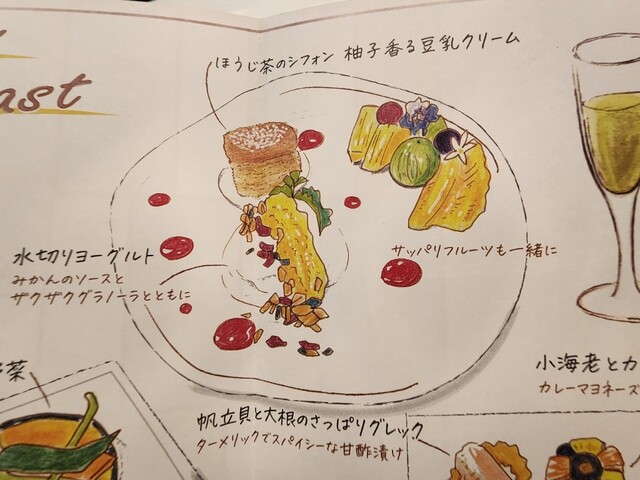 ast
ほうじ茶のシフォン 柚子香る豆乳クリーム
水切りヨーグルト
みかんのソースと
ザクザクグラノーラとともに
サッパリフルーツも一緒に
菜
小海老とカ
カレーマヨネーズ
帆立貝と大根のさっぱりグレック
ターメリックでスパイシーな甘酢漬け